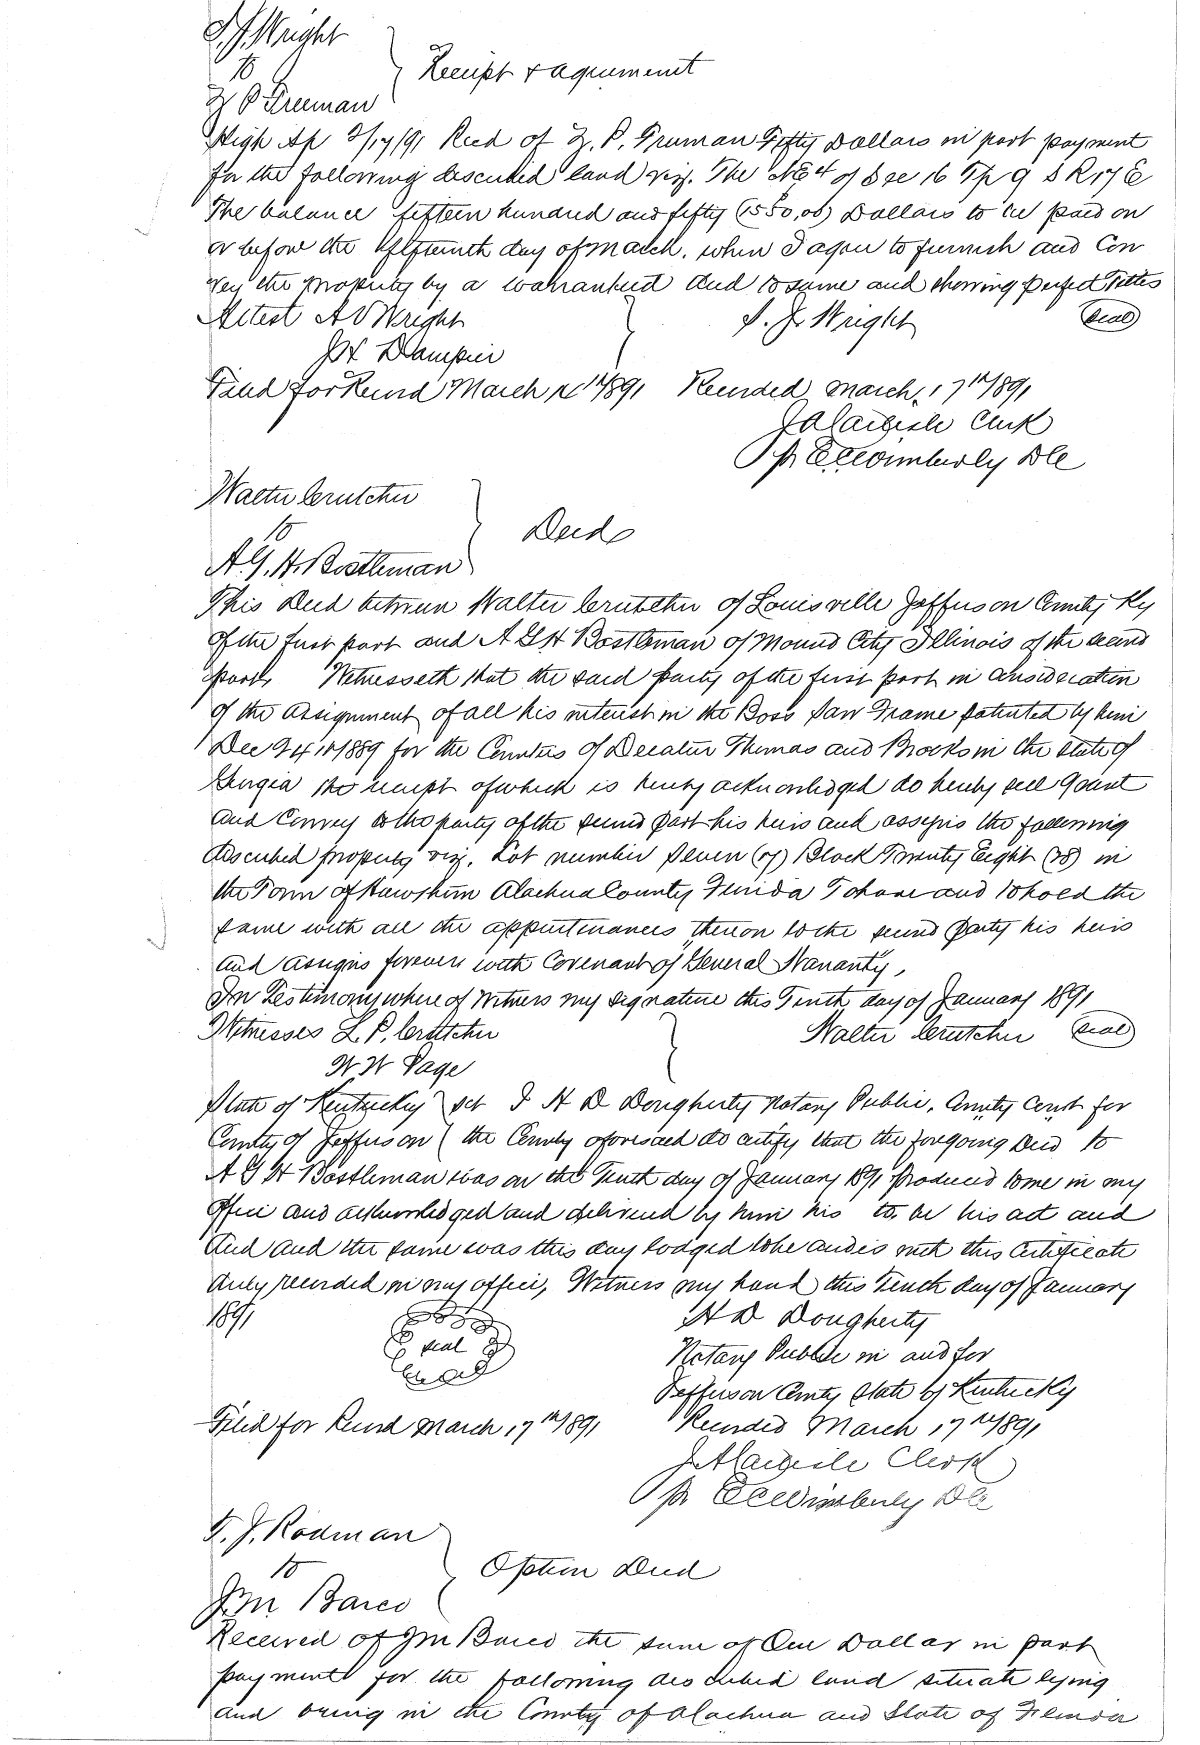 S. J. Wright
to
Z P Freeman
Receipt & agreement
High Sp 2/17/91 Recd of Z. P. Freeman Fifty Dollars in part payment
for the following described land viz. The NE4 of Sec 16 Tp 9 S R 17 E
The balance fifteen hundred and fifty (1550,00) Dollars to be paid on
or before the fifteenth day of March. when I agree to furnish and Con
vey the property by a warranteed deed to same and showing perfect Titles
Attest A V Wright
S. J. Wright seal
J H Dampier
Filed for Record March 1891 Recorded March, 17th 1891
J A Carlisle Clerk
Pr E C Wimberly D C
Walter Crutcher
to
A. G. H. Bostleman
Deed
This Deed between Walter Crutcher of Louisville Jefferson County Ky
of the first part and A G H Bostleman of Mound City Illinois of the second
part, Witnesseth that the said party of the first part in consideration
of the assignment of all his interest in the Boss Saw Frame patented by him
Dec 24th 1889 for the Counties of Decatur Thomas and Brooks in the State of
Georgia the receipt of which is hereby acknowledged do hereby sell grant
and Convey to the party of the second part his heirs and assigns the following
described property viz. Lot number Seven (7) Block Twenty Eight (28) in
the Town of Hawthorn Alachua County Florida To have and to hold the
same with all the appurtenances thereon to the second party his heirs
and assigns forever with Covenant of General Warranty,
In Testimony whereof Witness my signature this Tenth day of January 1891
Witnesses L. P. Crutcher
Walter Crutcher seal
W W Page
State of Kentucky sct I H D Dougherty Notary Public, County Court for
County of Jefferson the County aforesaid do certify that the foregoing Deed to
A G H Bostleman was on the Tenth day of January 1891 produced to me in my
office and acknowledged and delivered by him his to be his act and
deed and the same was this day lodged to be and is with this Certificate
duly recorded in my office, Witness my hand this Tenth day of January
1891
seal
H D Dougherty
Notary Public in and for
Jefferson County State of Kentucky
Filed for Record March, 17th 1891 Recorded March 17th 1891
J A Carlisle Clerk
Pr E C Wimberly D C
T. J. Rodman
to
J M Barco
Option Deed
Received of J M Barco the sum of One Dollar in part
payment for the following described land situate lying
and being in the County of Alachua and State of Florida